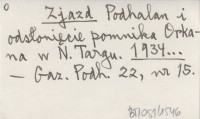 Zjazd Podhalan i
odsłonięcie pomnika Orka-
na w N. Targu. 1934...
— Gaz. Podh. 22, nr 15.